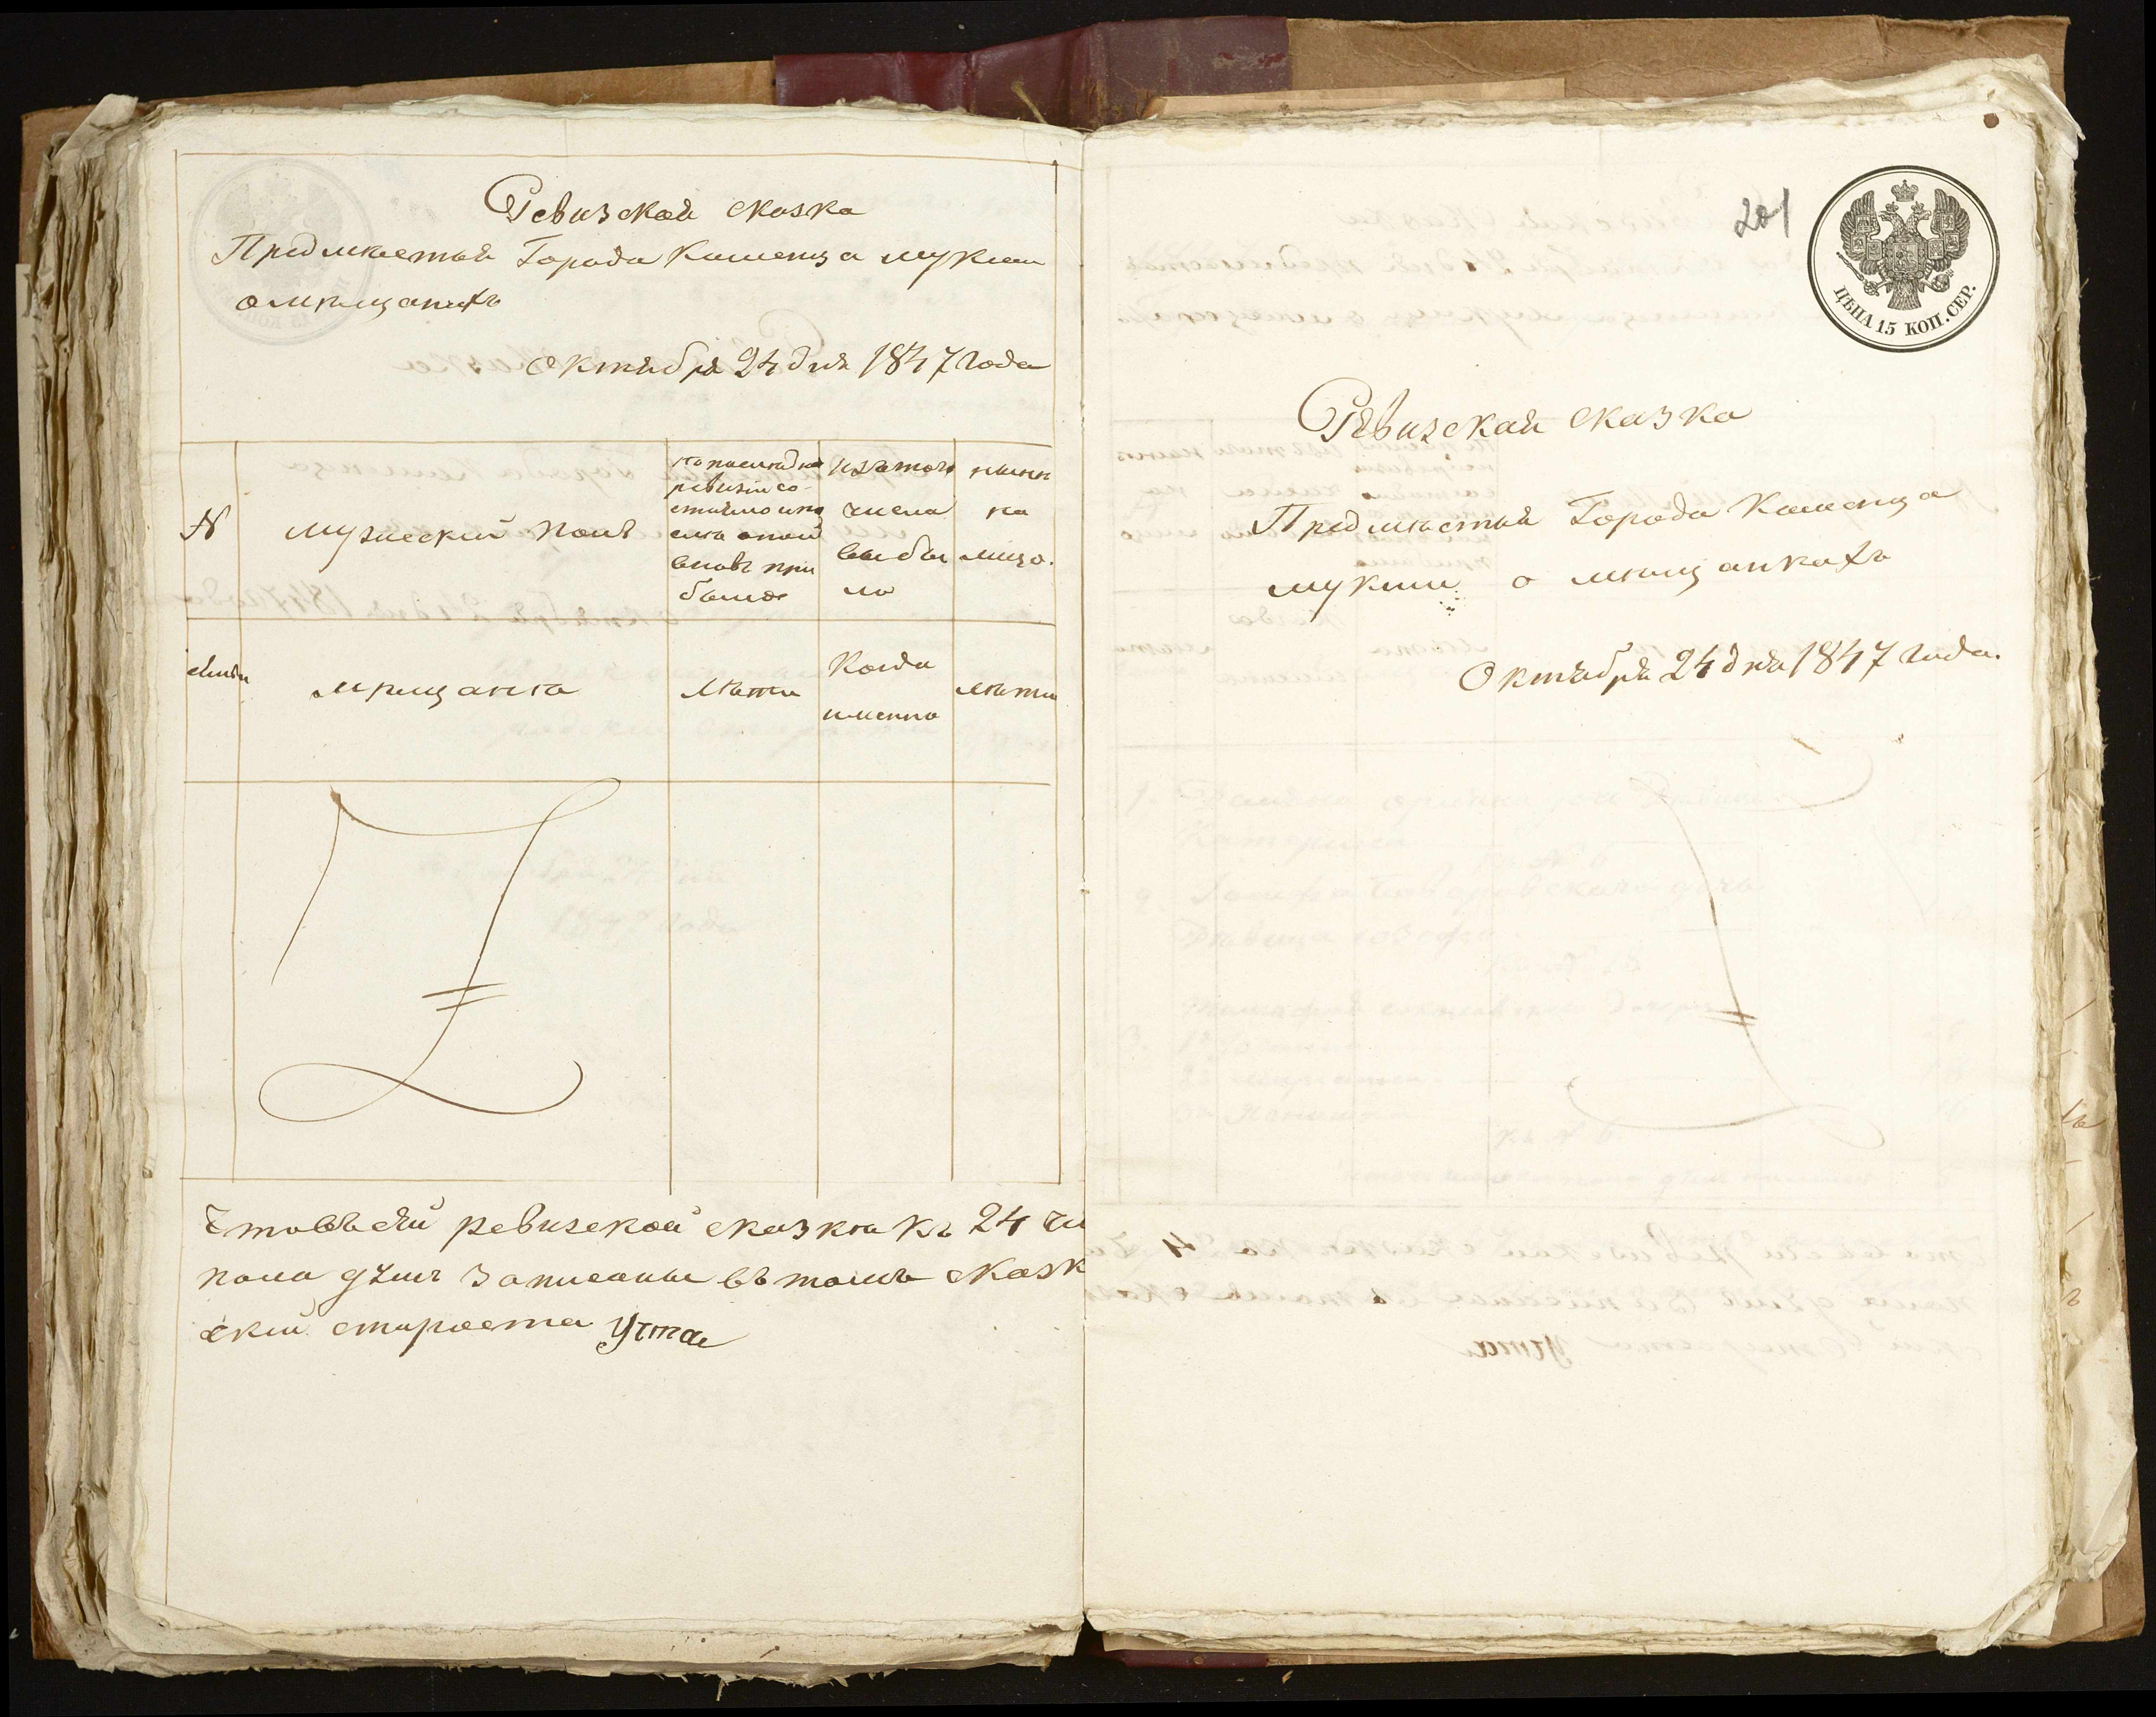 Ревизская сказка
Предмѣстья Города Каменца мукши
о мѣщанахъ
Октября 24 дня 1847 года
№
мужеский полъ
по последней
ревизии со-
стояло и по
сле оной
вновь при
было
изъ того
числа
выбы
ло
ныне
на
лицо.
мѣщанѣ
лѣта
Когда
именно
лѣта
Что въ сей ревизской сказкѣ къ 24 чи
пола душъ записаны въ томъ сказк
ский староста
201
ЦѢНА 15 КОП. СЕР.
Ревизская сказка
Предмѣстья Города Каменца
мукши о мѣщанкахъ
Октября 24 дня 1847 года.